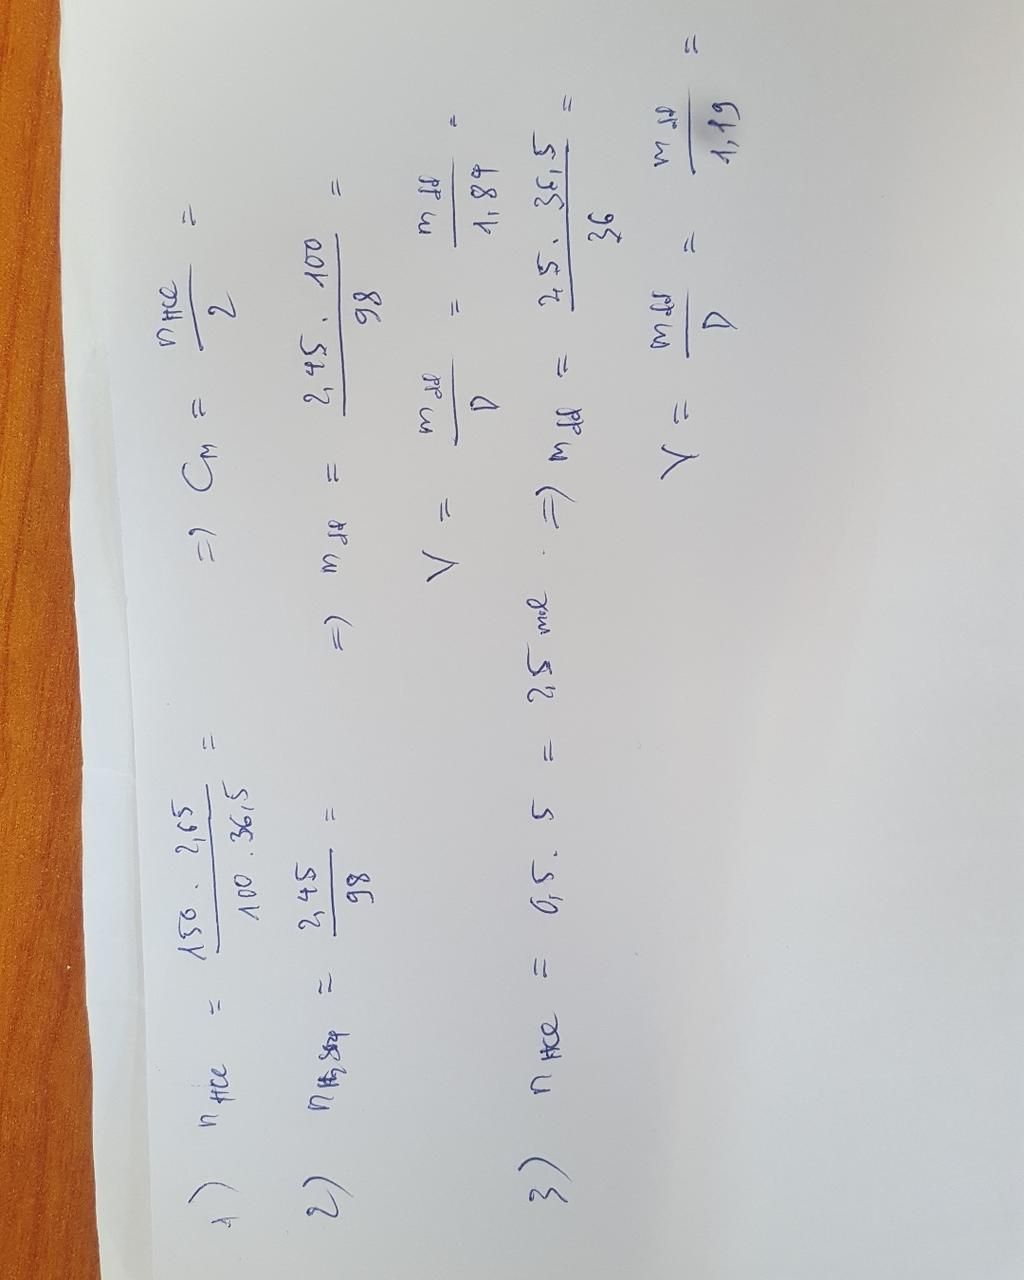 1) n HCl = 150 . 2,65 / 100 . 36,5 = => C_M = n HCl / 2 =
2) n H₂SO₄ = 2,45 / 98 = => m dd = 2,45 . 100 / 98 =
V = m dd / D = m dd / 1,84 =
3) n HCl = 0,5 . 5 = 2,5 mol . => m dd = 2,5 . 36,5 / 36 =
V = m dd / D = m dd / 1,19 =